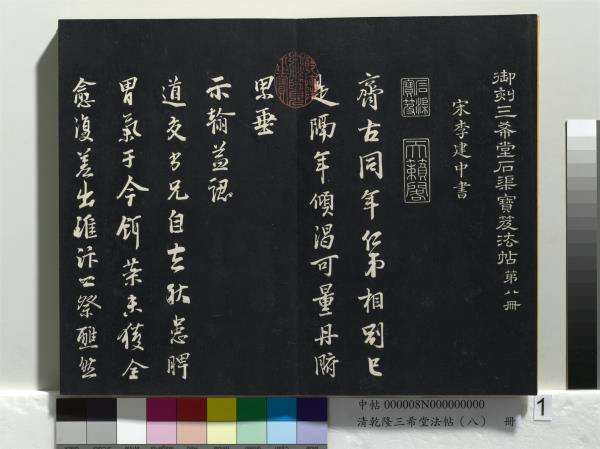 御刻三希堂石渠寶笈法帖 第八冊
宋李建中書
石渠寶笈
天籟閣
齊古同年仁弟相別已
是隔年傾渴可量丹腑
思垂
示翰益認
道交兄自去秋患脾
胃氣于今餌藥未獲全
愈復差出汴口祭醮然
中帖 000008N000000000
清乾隆三希堂法帖（八） 冊
1